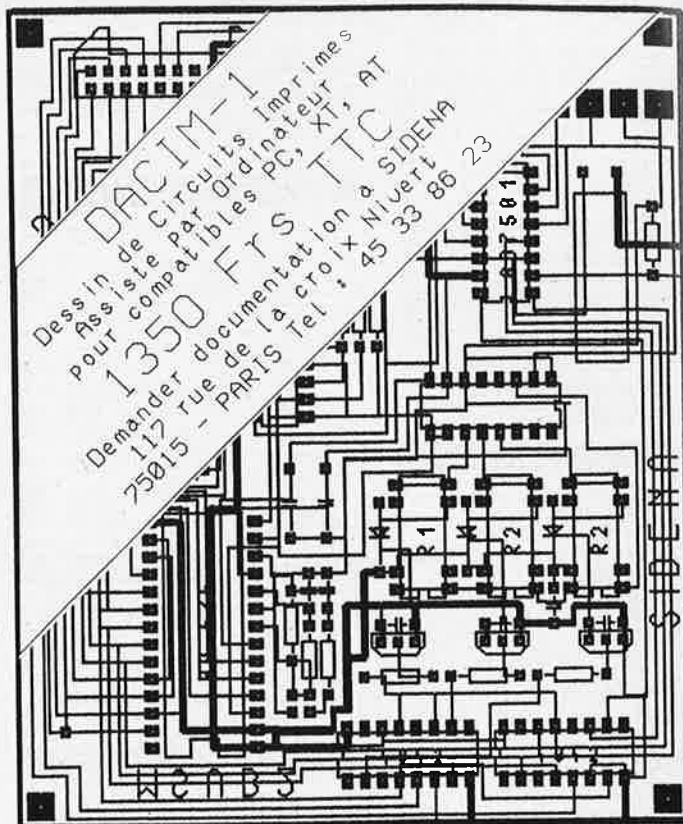 DACIM-1
Dessin de Circuits Imprimes
Assiste Par Ordinateur
pour compatibles PC, XT, AT
1350 Frs TTC
Demander documentation a SIDENA
117 rue de la croix Nivert
75015 - PARIS Tel : 45 33 86 23
501
R1
R2
R2
SIDENA
WCAB3